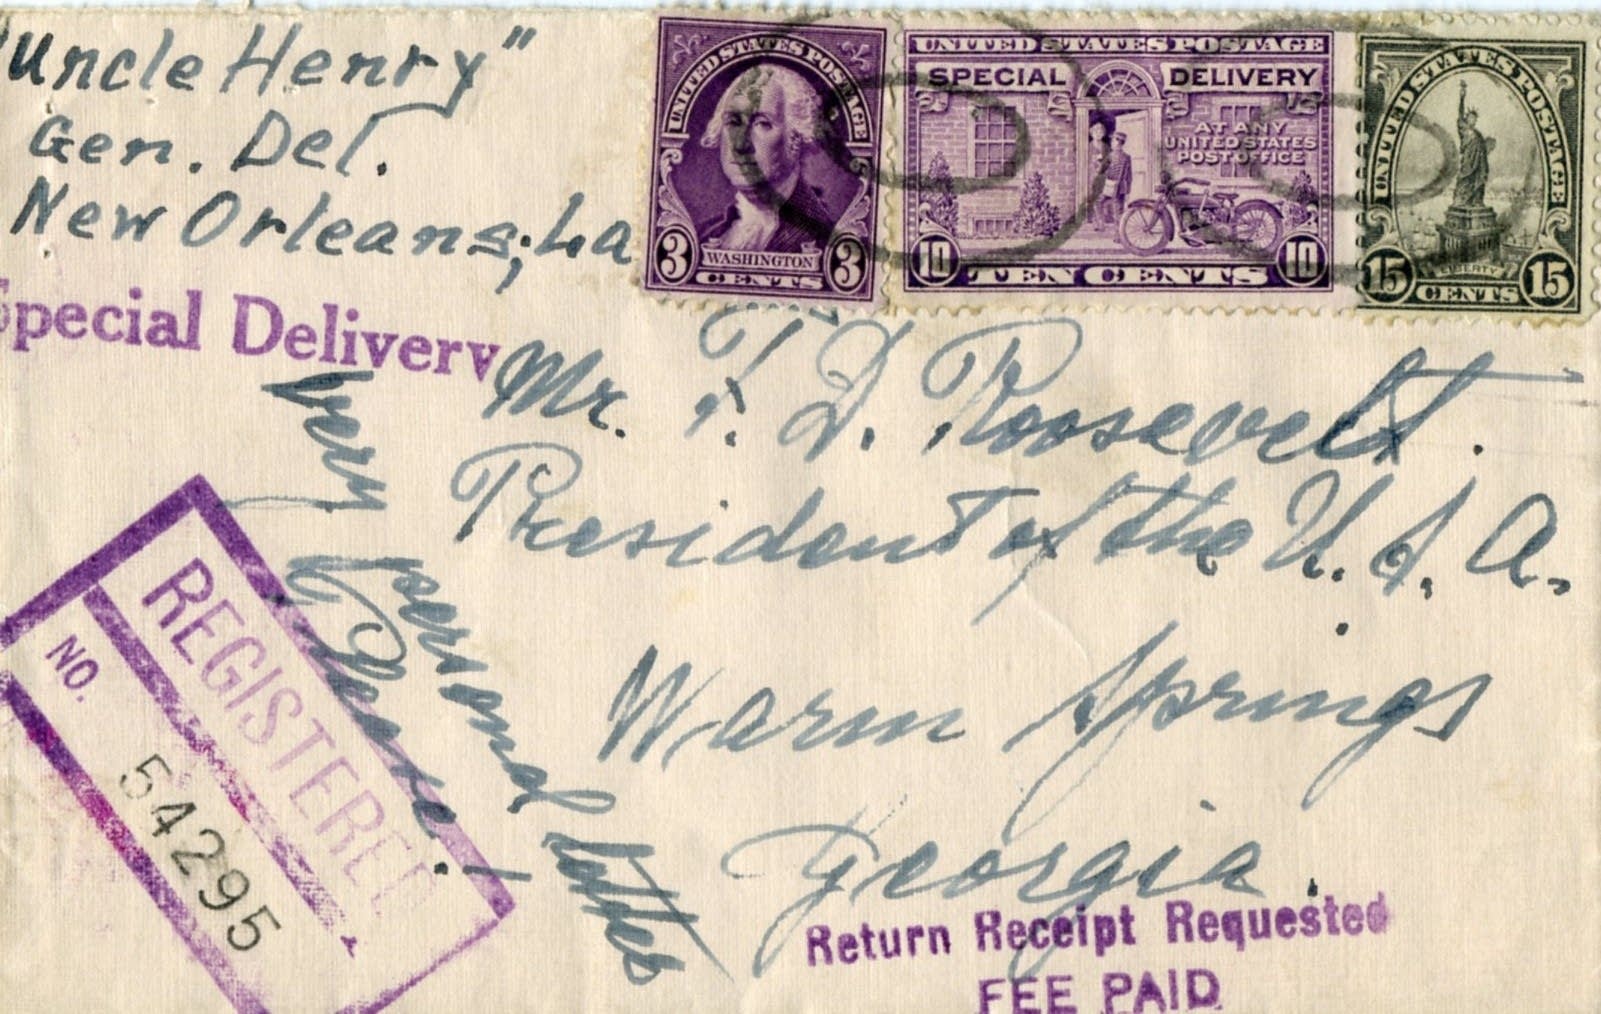 "Uncle Henry"
Gen. Del.
New Orleans, La
Special Delivery
UNITED STATES POSTAGE
3 WASHINGTON 3
CENTS
UNITED STATES POSTAGE
SPECIAL DELIVERY
AT ANY
UNITED STATES
POST OFFICE
10 TEN CENTS 10
UNITED STATES POSTAGE
LIBERTY
15 CENTS 15
Mr. F. D. Roosevelt.
President of the U. S. A.
Warm Springs
Georgia.
very personal letter
Please!
REGISTERED
NO.
54295
Return Receipt Requested
FEE PAID